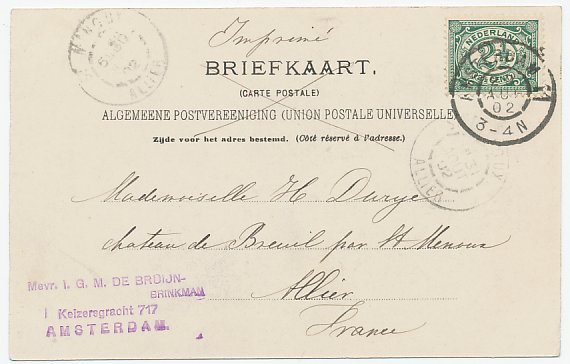 Imprimé
BRIEFKAART.
(CARTE POSTALE)
ALGEMEENE POSTVEREENIGING (UNION POSTALE UNIVERSELLE)
Zijde voor het adres bestemd. (Côté réservé à l'adresse.)
NEDERLAND
2½
AUG
02
3-4N
ALLIER
02
ALLIER
02
Mademoiselle H Durye
chateau de Breuil par St Menoux
Allier
France
Mevr. I. G. M. DE BRUIJN-
BRINKMAN
Keizersgracht 717
AMSTERDAM.